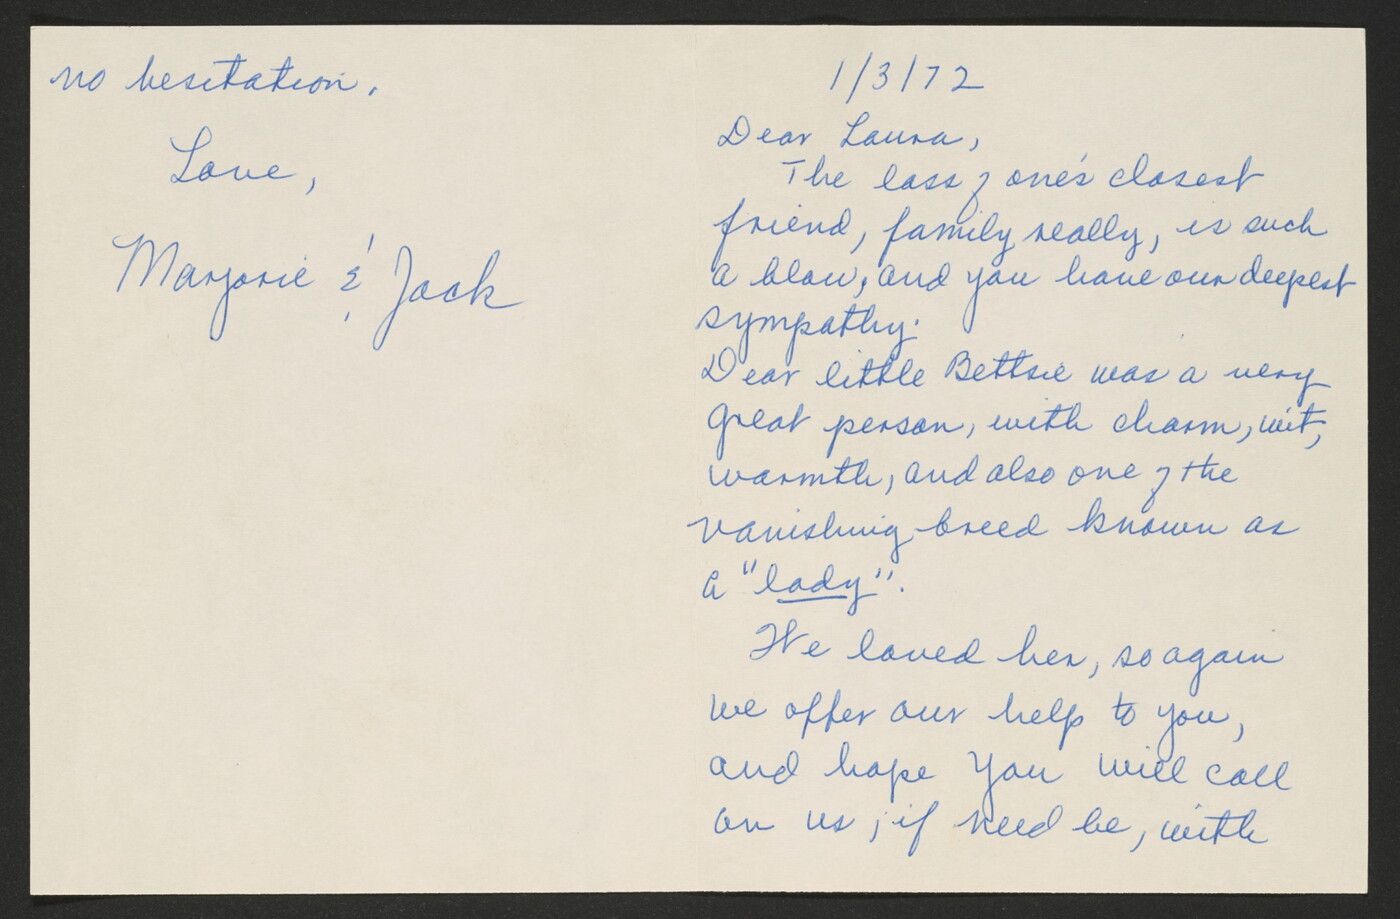 1/3/72
Dear Laura,
The loss of one's closest
friend, family really, is such
a blow, and you have our deepest
sympathy.
Dear little Bettsie was a very
great person, with charm, wit,
warmth, and also one of the
vanishing breed known as
a "lady".
We loved her, so again
we offer our help to you,
and hope you will call
on us, if need be, with
no hesitation.
Love,
Marjorie & Jack